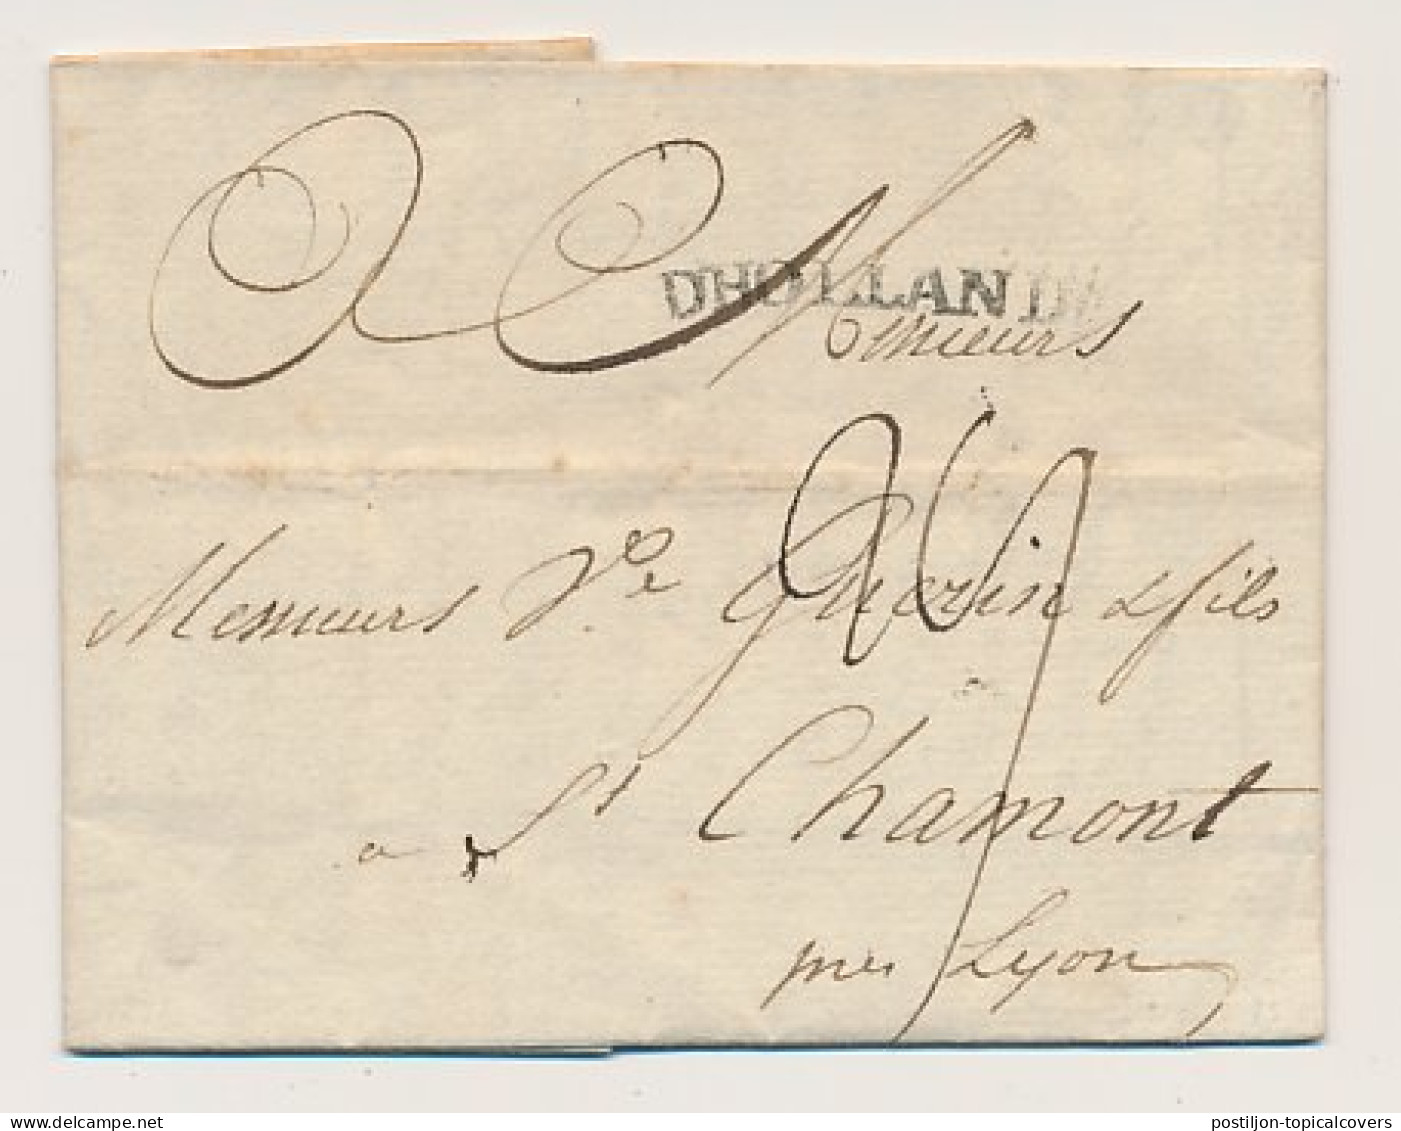 D'HOLLANDE
Monsieurs
24
Messieurs Ve. Guerin & fils
a St Chamont
pres Lyon
delcampe.net
postiljon-topicalcovers